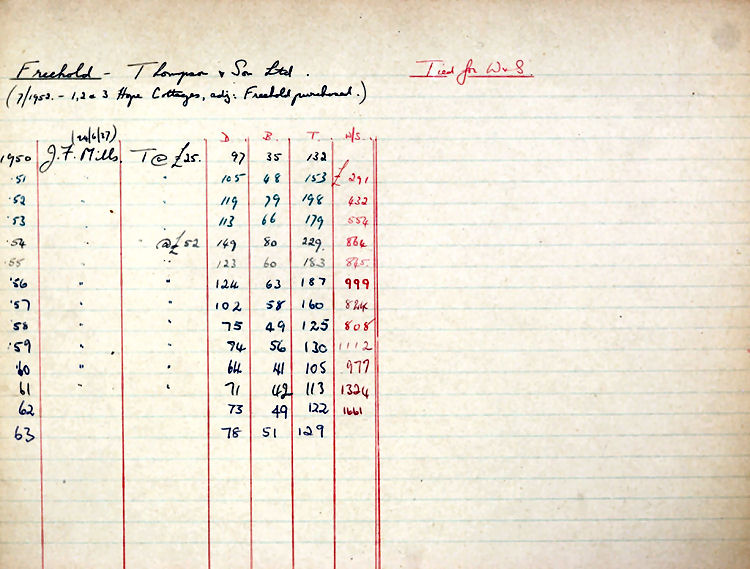 Freehold - Thompson & Son Ltd. Tied for W & S.
(7/1952. - 1, 2 & 3 Hope Cottages, adj: Freehold purchased.)
(24/6/37) D. B. T. W/S.
1950 J.F. Mills. T @ £25. 97 35 132
'51 " " 105 48 153 £291
'52 " " 119 79 198 432
'53 " " 113 66 179 554
'54 " @ £52 149 80 229 864
'55 " " 123 60 183 845
'56 " " 124 63 187 999
'57 " " 102 58 160 824
'58 " " 75 49 125 808
'59 " " 74 56 130 1112
'60 " " 64 41 105 977
61 " " 71 42 113 1324
62 73 49 122 1661
63 78 51 129